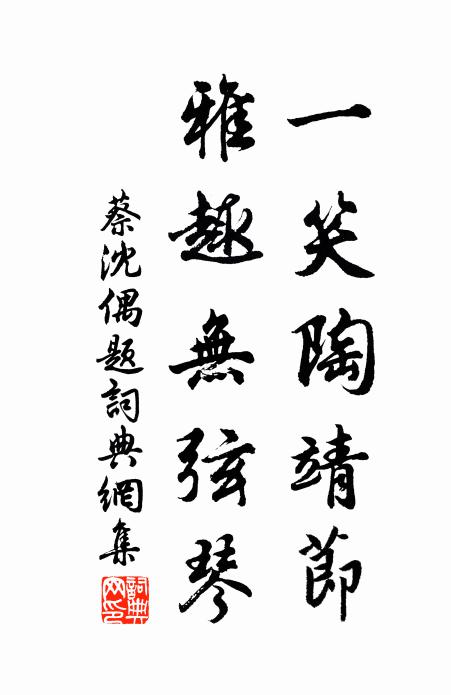 一笑陶靖節
雅趣無弦琴
蔡沈偶題詞典網集
詞典网印